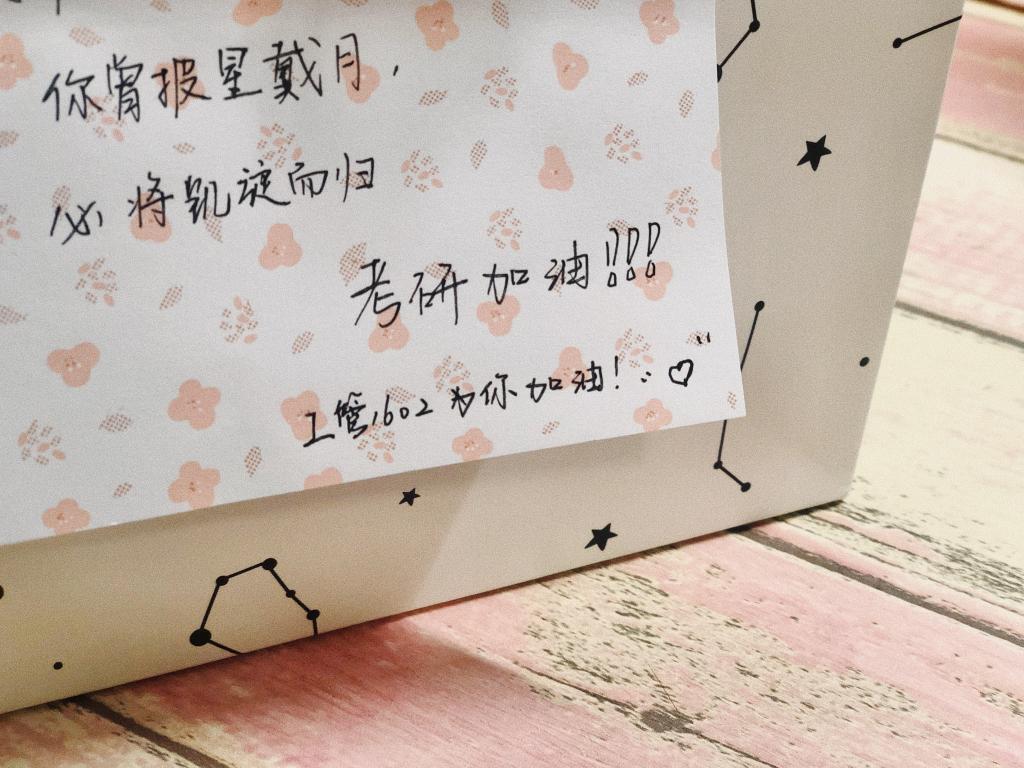 你曾披星戴月，
必将凯旋而归
考研加油!!!
工管1602为你加油！